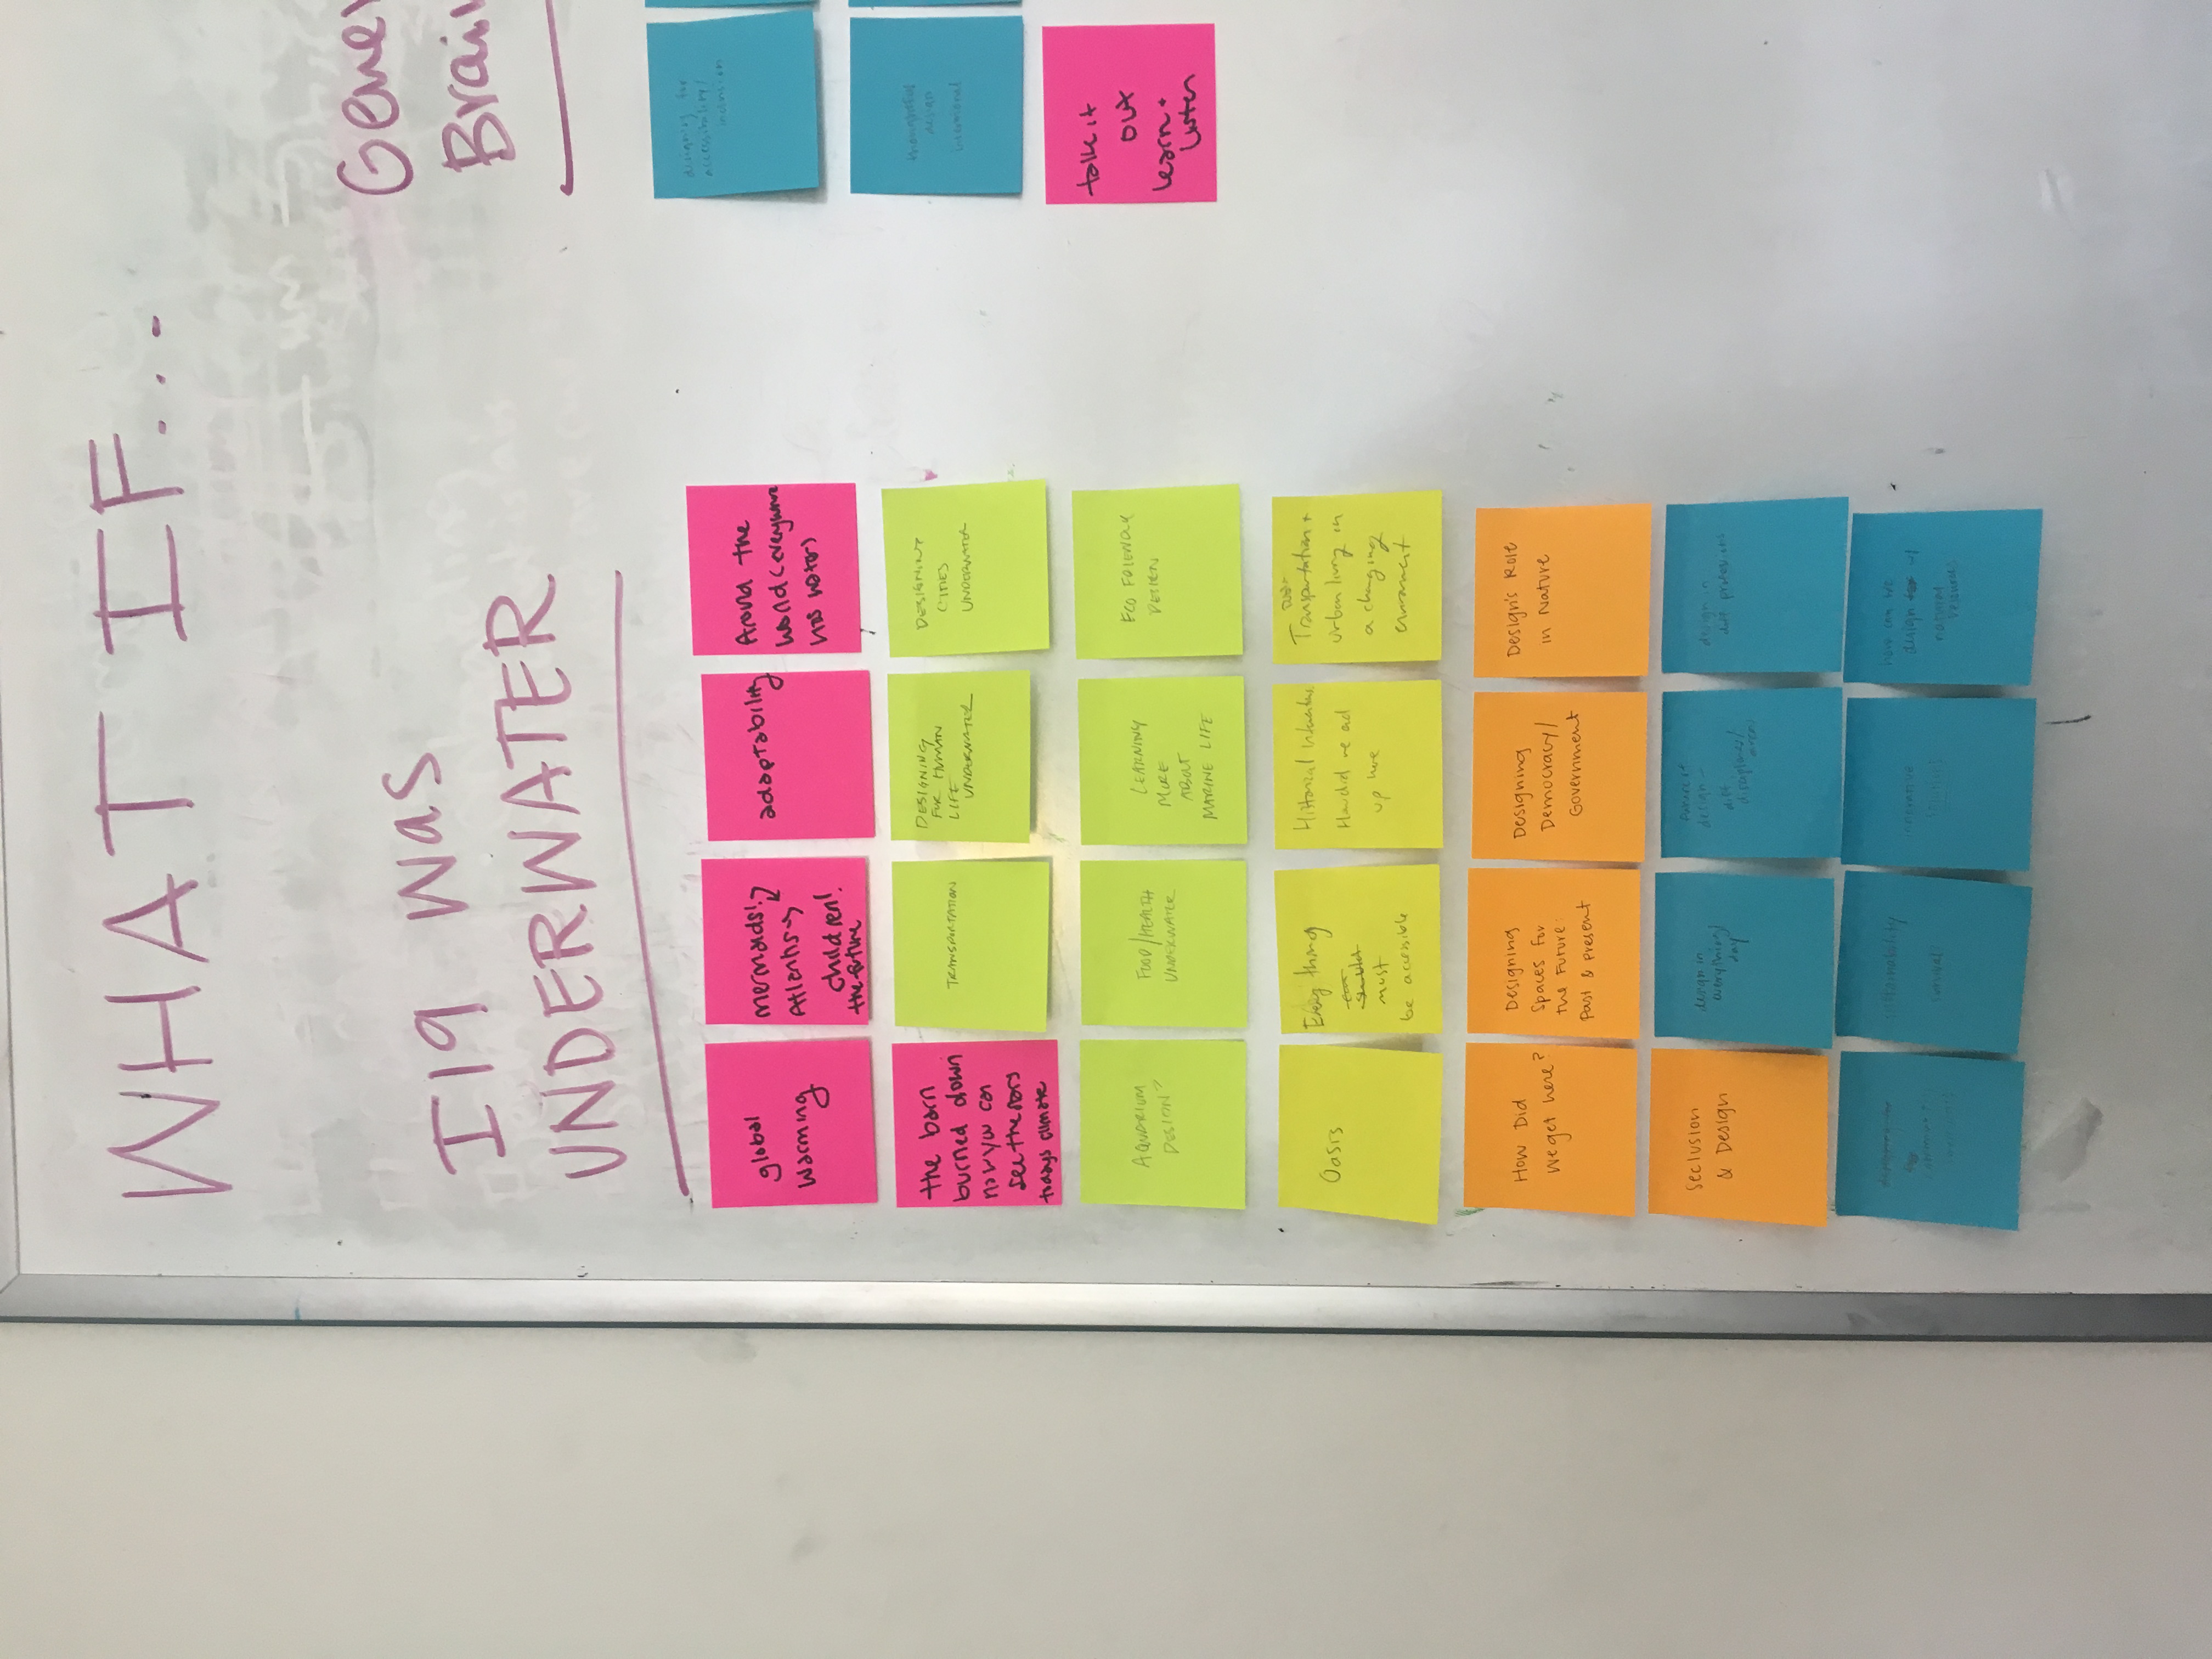 WHAT IF...
I19 was
UNDERWATER
global
warming
mermaids!
Atlantis
children!
the future
adaptability
Around the
world (everywhere
has water)
the barn
burned down
now you can
see the stars
todays climate
TRANSPORTATION
DESIGNING
FOR HUMAN
LIFE
UNDERWATER
DESIGNING
CITIES
UNDERWATER
AQUARIUM
DESIGN?
FOOD/HEALTH
UNDERWATER
LEARNING
MORE
ABOUT
MARINE LIFE
ECO FRIENDLY
DESIGN
Oasis
Everything
must
be accessible
Historical
How did we end
up here
Transportation +
urban living in
a changing
environment
How Did
we get here?
Designing
Spaces for
the Future:
Past & present
Designing
Democracy/
Government
Design's Role
in Nature
Seclusion
& Design
design in
everything/
day
design
diff
disciplines/
areas
design in
diff professions
sustainability
survival
innovative
solutions
how can we
design w/
natural
resources
Gener
Brain
designing for
accessibility/
inclusion
thoughtful
design
intentional
talk it
out
learn +
listen